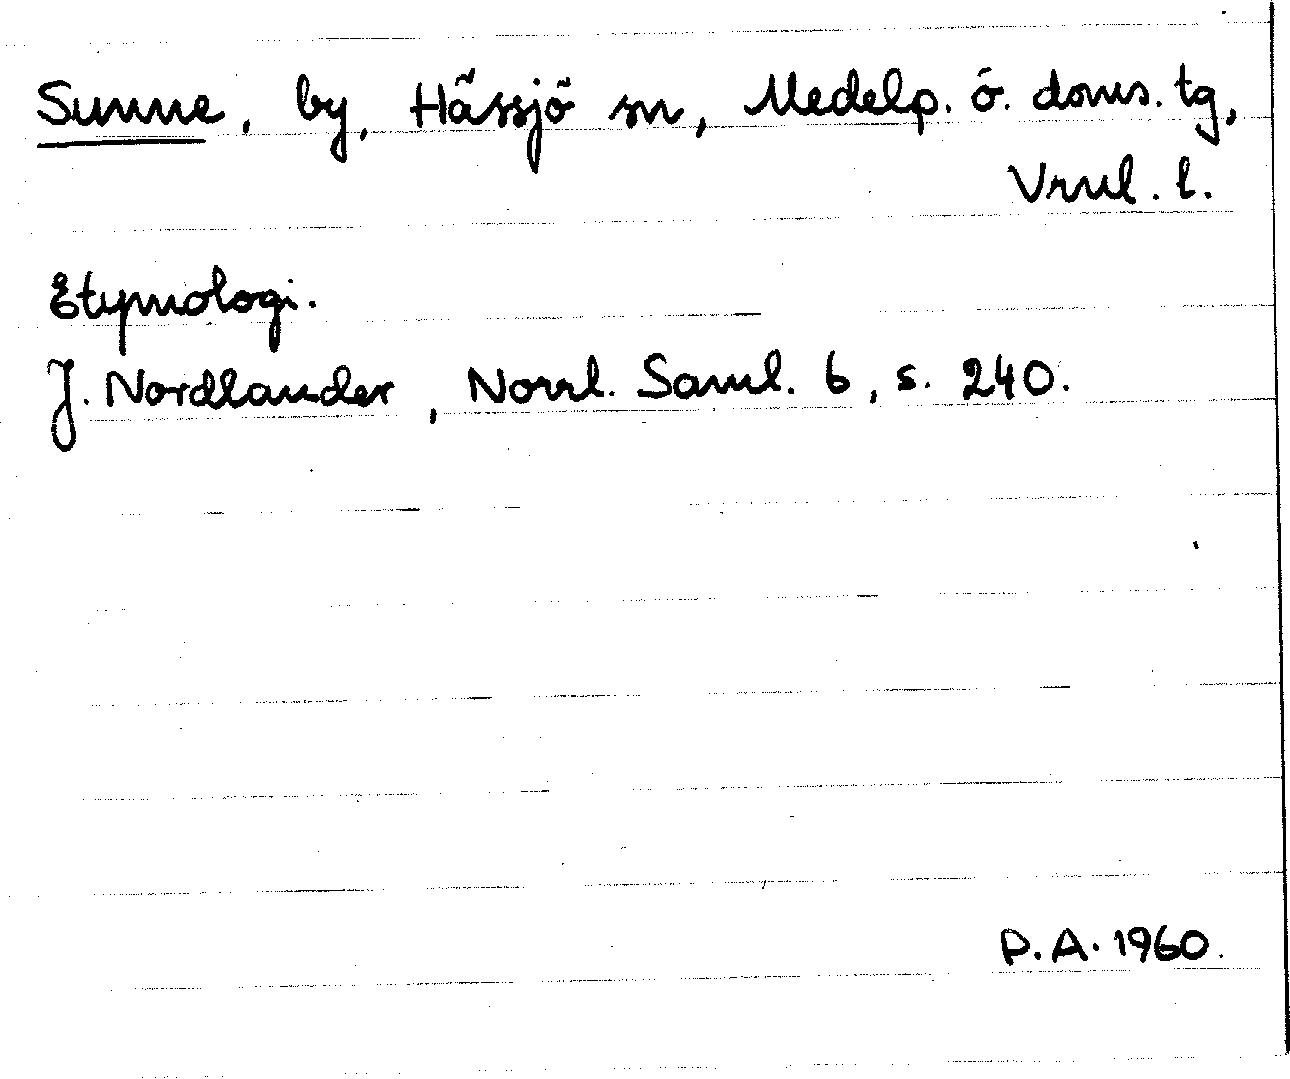 Sunne, by, Hässjö sn, Medelp. ö. doms. tg,
Vrnl. l.
Etymologi.
J. Nordlander, Norrl. Saml. 6, s. 240.
P.A. 1960.